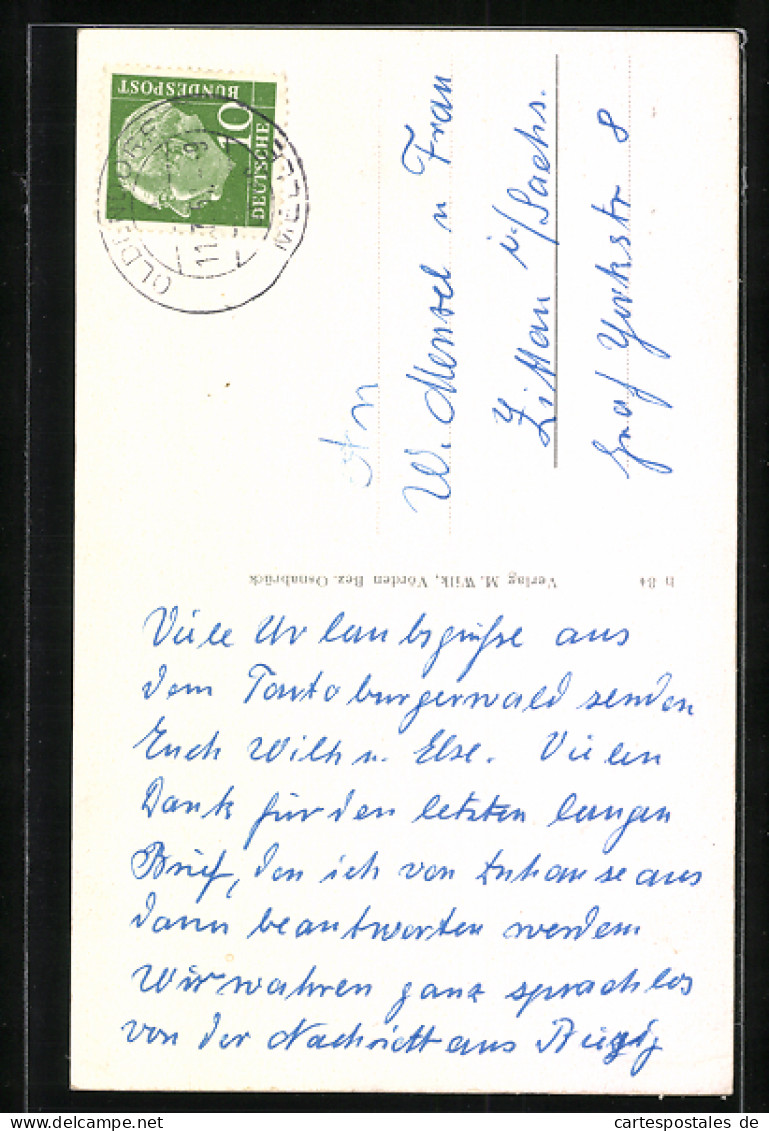 DEUTSCHE
BUNDESPOST
10
OLDENDORF
MELLE
An
W. Mensel u Frau
Zittau i./Sachs.
Graf Yorkstr 8
h 84 Verlag M. Wilk, Vörden Bez. Osnabrück
Viele Urlaubsgrüße aus
dem Teutoburgerwald senden
Euch Wilh u. Else. Vielen
Dank für den letzten langen
Brief, den ich von Zuhause aus
dann beantworten werde
Wir wahren ganz sprachlos
von der Nachricht aus
cartespostales de